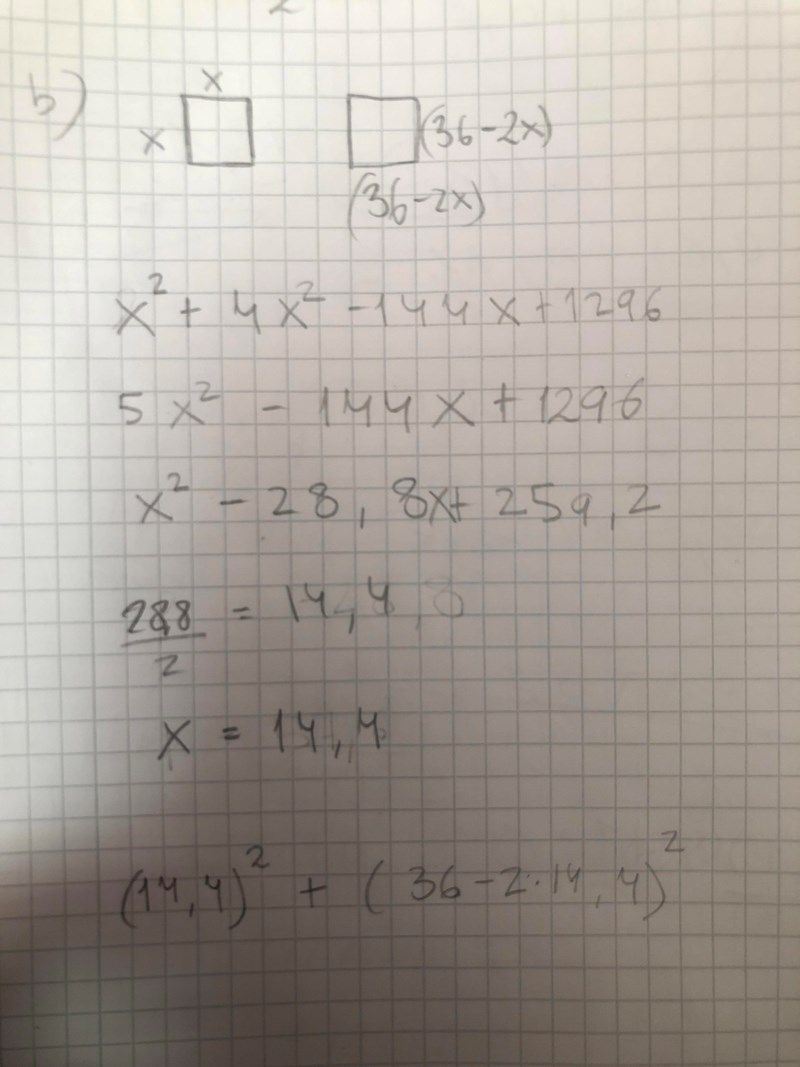 b)
x
x
(36-2x)
(36-2x)
x² + 4x² - 144x + 1296
5x² - 144x + 1296
x² - 28,8x + 259,2
28,8/2 = 14,4
x = 14,4
(14,4)² + (36-2·14,4)²